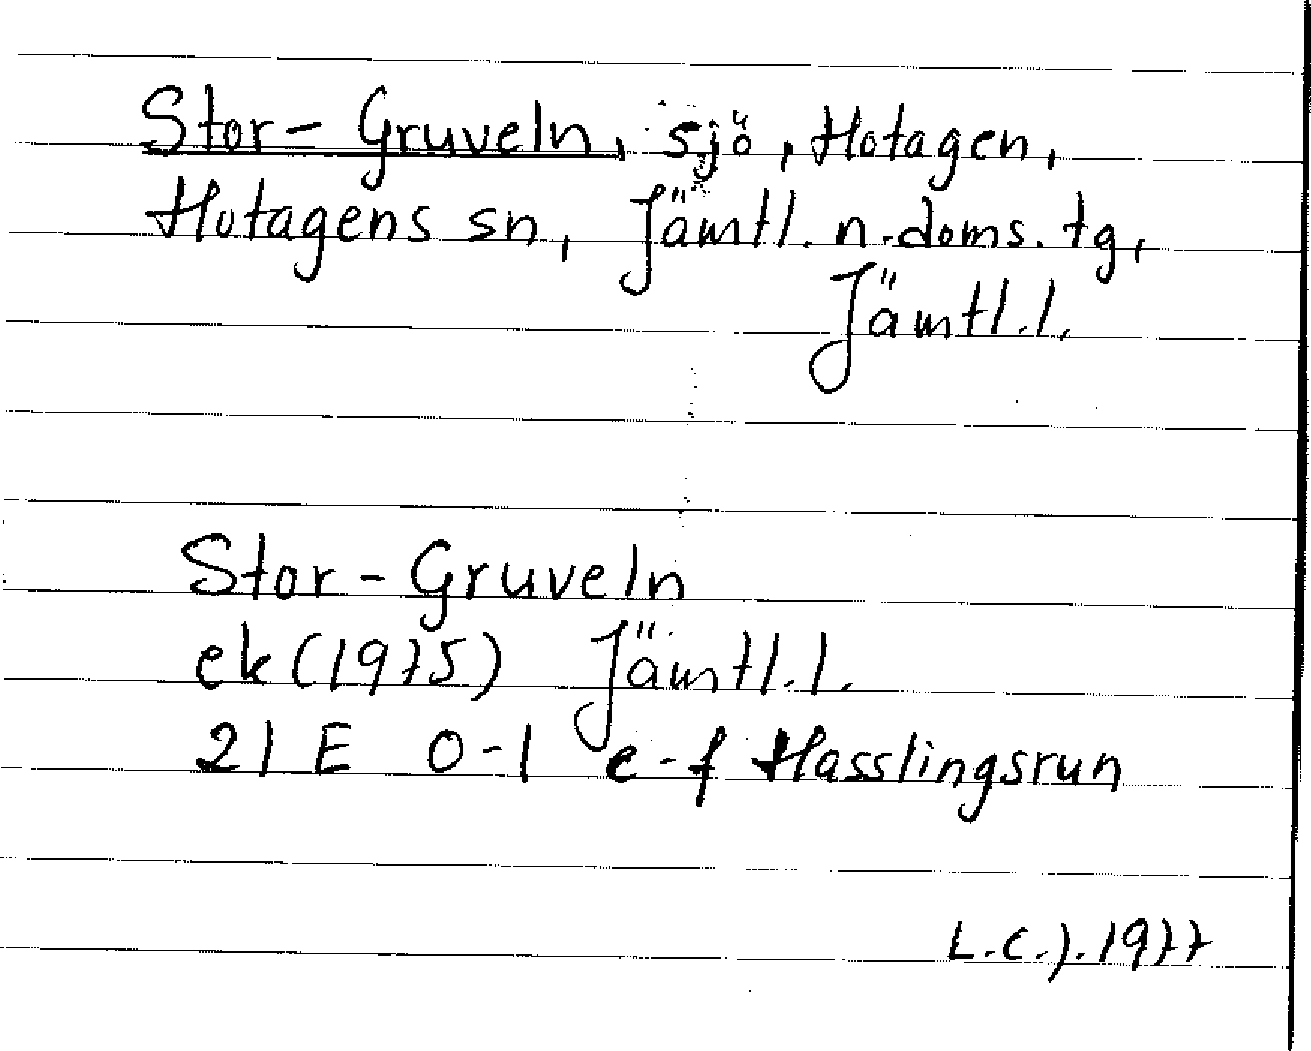 Stor-Gruveln, sjö, Hotagen,
Hotagens sn, Jämtl. n. doms. tg,
Jämtl. l.
Stor-Gruveln
ek (1975) Jämtl. l.
21 E 0-1 e-f Hasslingsrun
L.C.J. 1977